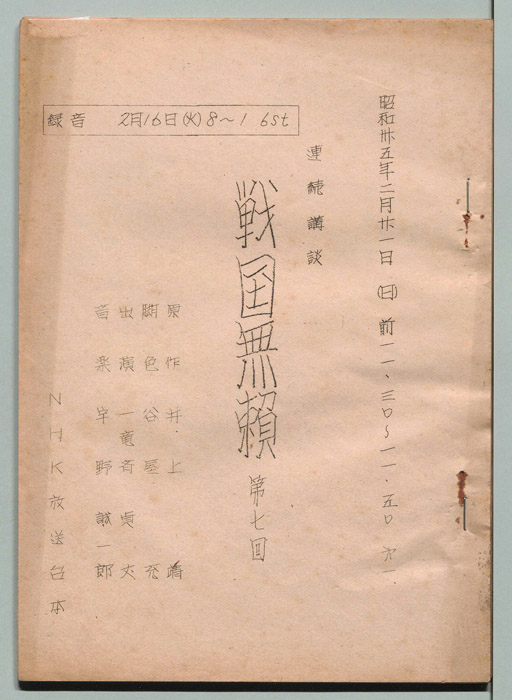 昭和卅五年二月廿一日(日)前一一、三〇〜一一・五〇 第一
連続講談
戦国無頼 第七回
原作 井上 靖
脚色 谷屋 充
出演 一竜斎 貞丈
音楽 宇野 誠一郎
NHK放送台本
録音 2月16日(火)8〜1 6st